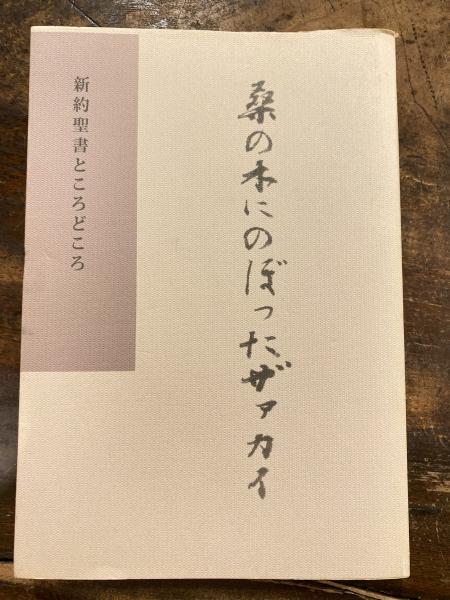 桑の木にのぼったザアカイ
新約聖書ところどころ